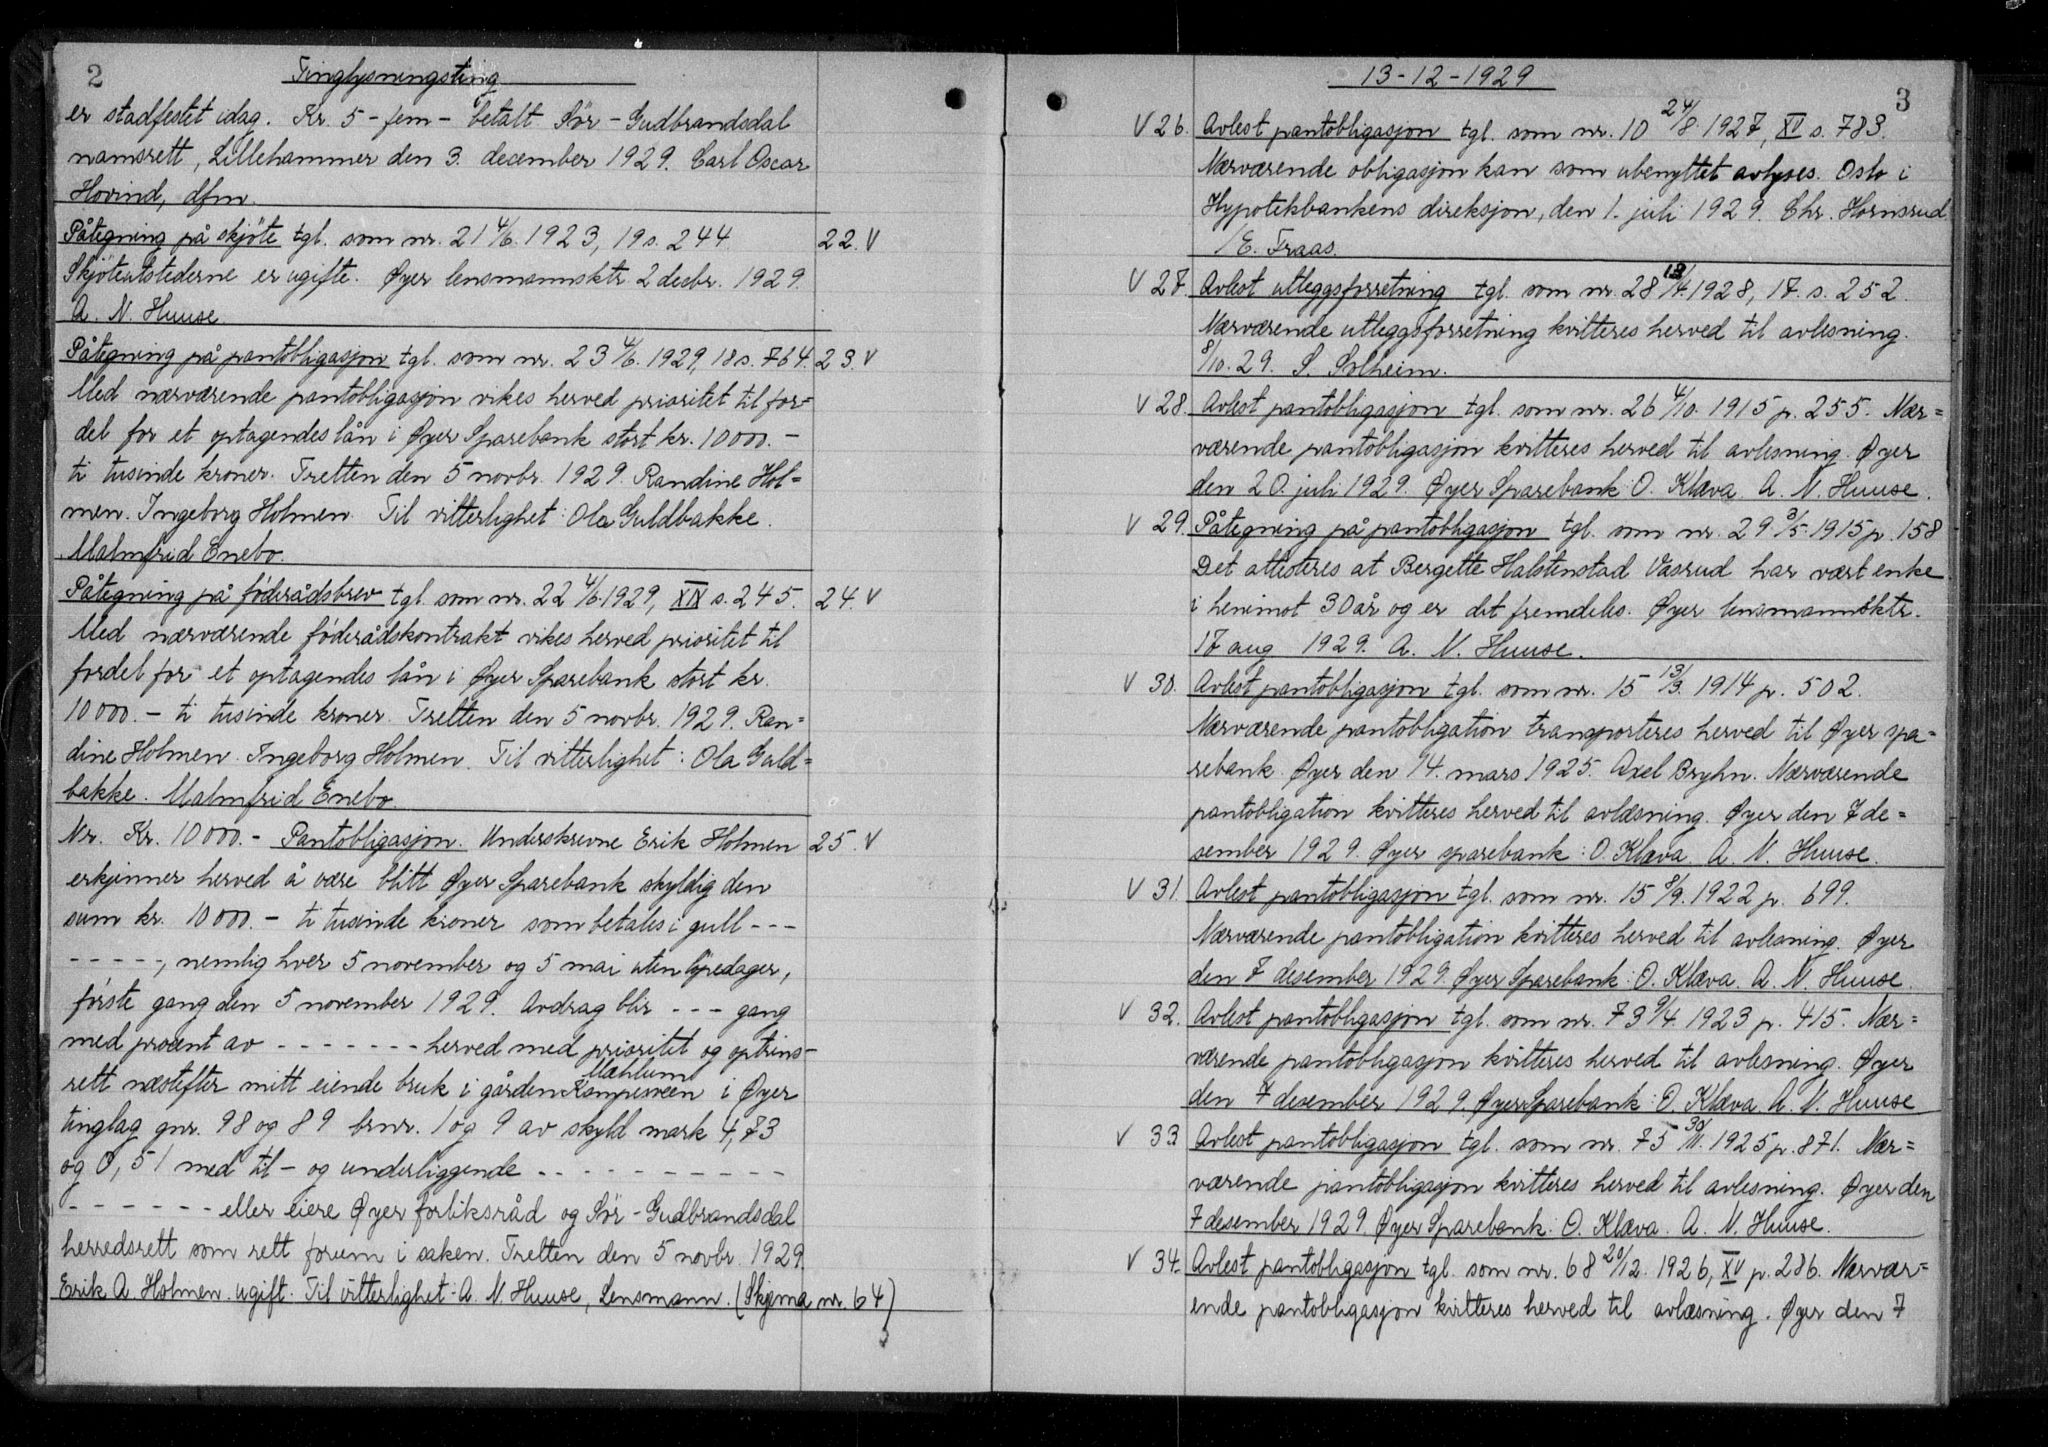 2 Tinglysningsting
er stadfestet idag. Kr. 5 - fem - betalt Sör - Gudbrandsdal
namsrett, Lillehammer den 3. december 1929. Carl Oscar
Hovind, dfm.
Påtegning på skjöte tgl. som nr. 21 4/6 1923, 19 s. 244. 22. V
Skjöteutstederne er ugifte. Øyer lensmannsktr 2 decbr. 1929.
A. N. Huuse.
Påtegning på pantobligasjon tgl. som nr. 23 4/6. 1929, 18 s. 764. 23. V
Med nærværende pantobligasjon vikes herved prioritet til for=
del for et optagendes lån i Øyer Sparebank stort kr. 10000.-
ti tusinde kroner. Tretten den 5 novbr. 1929. Randine Hol=
men. Ingeborg Holmen. Til vitterlighet: Ola Guldbakke.
Malmfrid Enebo.
Påtegning på föderådsbrev tgl. som nr. 22 4/6 1929, XIX s. 245. 24. V
Med nærværende föderådskontrakt vikes herved prioritet til
fordel for et optagendes lån i Øyer Sparebank stort kr.
10000.- ti tusinde kroner. Tretten den 5 novbr. 1929. Ran=
dine Holmen. Ingeborg Holmen. Til vitterlighet: Ola Guld=
bakke. Malmfrid Enebo.
Nr. Kr. 10000.- Pantobligasjon. Underskrevne Erik Holmen 25. V
erkjenner herved å være blitt Øyer Sparebank skyldig den
sum kr. 10000.- ti tusinde kroner som betales i gull ---
-----, nemlig hver 5 november og 5 mai uten löpedager,
förste gang den 5 november 1929. Avdrag blir --- gang
med procent av ------- herved med prioritet og optrins-
Mæhlum
rett næstefter mitt eiende bruk i gården i Øyer
tinglag gnr. 98 og 89 brnr. 1 og 9 av skyld mark 4,73
og 0,51 med til- og underliggende ----------
------ eller eiere Øyer forliksråd og Sör-Gudbrandsdal
herredsrett som rett forum i saken. Tretten den 5 novbr. 1929.
Erik A Holmen. ugift. Til vitterlighet: A. N. Huuse, Lensmann. (Skjema nr. 64)
13-12-1929 3
V 26. Avlest pantobligasjon tgl. som nr. 10 24/8 1927, XV s. 783.
Nærværende obligasjon kan som ubenyttet avlyses. Oslo i
Hypotekbankens direksjon, den 1. juli 1929. Chr. Hornsrud
/E. Fraas.
V 27. Avlest utleggsforretning tgl. som nr. 28 13/4. 1928, 17. s. 252
Nærværende utleggsforretning kvitteres herved til avlesning.
8/10. 29. S. Solheim.
V 28. Avlest pantobligasjon tgl. som nr. 26 4/10. 1915 p. 255. Nær=
værende pantobligasjon kvitteres herved til avlesning. Øyer
den 20. juli 1929. Øyer Sparebank: O. Klæva. A. N. Huuse.
V 29. Påtegning på pantobligasjon tgl. som nr. 29 3/5. 1915 p. 158
Det attesteres at Bergette Halstenstad Vasrud har vært enke
i henimot 30 år og er det fremdeles. Øyer lensmannsktr.
17 aug 1929. A. N. Huuse.
V 30. Avlest pantobligasjon tgl. som nr. 15 13/3. 1914 p. 502.
Nærværende pantobligation transporteres herved til Øyer spa=
rebank. Øyer den 14. mars 1925. Axel Bryhn. Nærværende
pantobligation kvitteres herved til avlæsning. Øyer den 7 de=
sember 1929. Øyer sparebank: O. Klæva. A. N. Huuse.
V 31. Avlest pantobligasjon tgl. som nr. 15 8/9. 1922 p. 699.
Nærværende pantobligation kvitteres herved til avlesning. Øyer
den 7 desember 1929. Øyer Sparebank: O. Klæva. A. N. Huuse.
V 32. Avlest pantobligasjon tgl. som nr. 73 9/4. 1923 p. 415. Nær=
værende pantobligasjon kvitteres herved til avlesning. Øyer
den 7 desember 1929. Øyer Sparebank: O. Klæva. A. N. Huuse
V 33. Avlest pantobligasjon tgl. som nr. 75 30/11. 1925 p. 871. Nær=
værende pantobligasjon kvitteres herved til avlesning. Øyer den
7 desember 1929. Øyer Sparebank: O. Klæva. A. N. Huuse.
V 34. Avlest pantobligasjon tgl. som nr. 68 20/12. 1926, XV p. 286. Nærvær=
ende pantobligasjon kvitteres herved til avlæsning. Øyer den 7